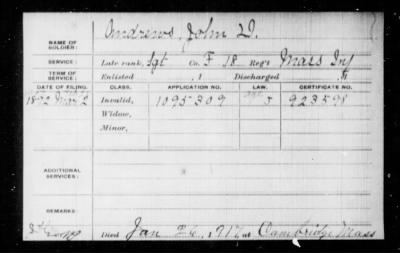 NAME OF SOLDIER: Andrews, John D.
SERVICE: Late rank, Sgt Co. F 18 Reg't Mass Inf
TERM OF SERVICE: Enlisted , 1 Discharged , 1
DATE OF FILING. CLASS. APPLICATION NO. LAW. CERTIFICATE NO.
1892 Invalid, 1095309 923598
Widow,
Minor,
ADDITIONAL SERVICES:
REMARKS:
Died Jan 26, 1917 at Cambridge Mass